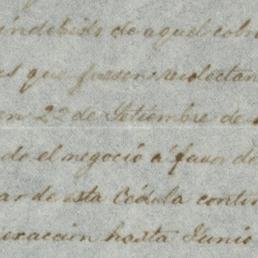 indebido de aquel cobr
es que fuesen recolectan
en 22 de Setiembre de
do el negocio á favor de
ar de esta Cédula conti
exaccion hasta Junio